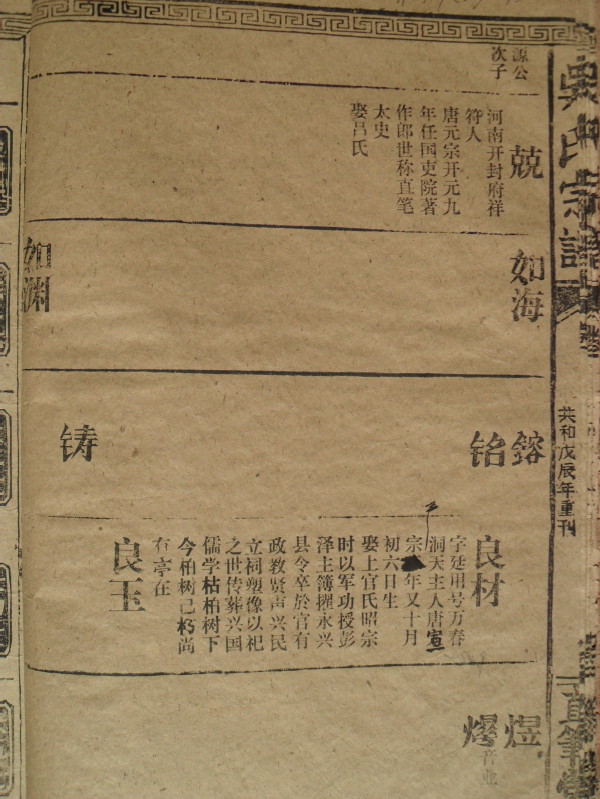 吴氏宗譜
共和戊辰年重刊
直筆堂
源公
次子
兢
河南开封府祥
符人
唐元宗开元九
年任国吏院著
作郎世称直笔
太史
娶吕氏
如海
如渊
鎔
铭
铸
良材
字廷用号万春
洞天主人唐宣
宗三年又十月
初六日生
娶上官氏昭宗
时以军功授彭
泽主簿擢永兴
县令卒於官有
政教贤声兴民
立祠塑像以祀
之世传葬兴国
儒学枯柏树下
今柏树已朽尚
有亭在
良玉
煜
燿
音业